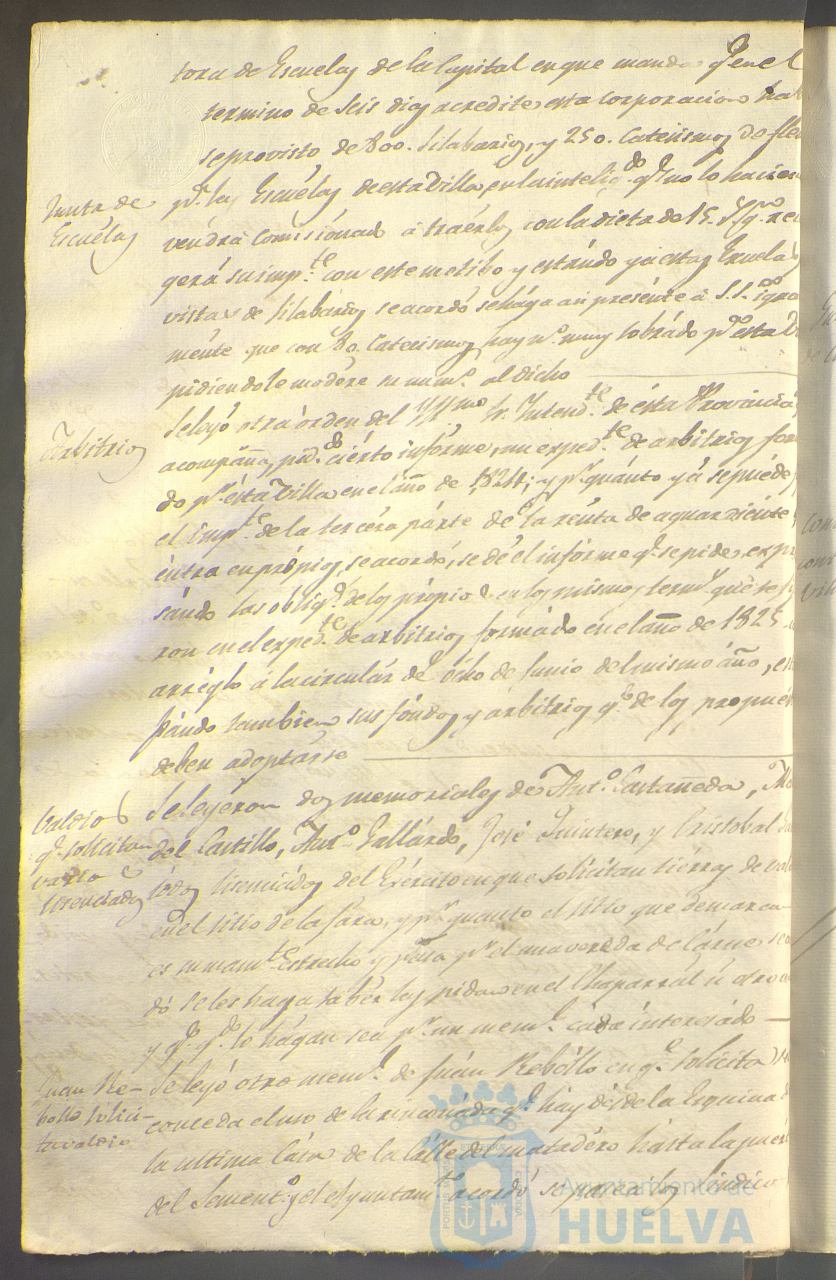 tora de Escuelas de la Capital en que manda qe en el
termino de seis dias acredite esta corporacion ha
seprovisto de 800. silabarios, y 250. Catecismos de Fle
Junta de
Escuelas
pa. las Escuelas de esta Villa, en la inteligda. qe. no lo hacien
vendrá Comisionado á traerlos con la dieta de 15.
gerá su impte. con este motibo y estándo ya estas Escuelas
vistas de silabarios se acordó se hága asi presénte á S.S.
mente que con 80. Catecismos hay no. muy sobrádo pa. esta V
pidiendole modére su numo. al dicho
Arbitrios
Se leyó otra órden del Yllmo Sr. Intendte. de ésta Provincia
acompaña, pa. ciérto infórme, un expedte. de arbitrios for
do pr. ésta Villa en el año de 1824; y pr. quánto yá se puéde
el impte. de la tercéra párte de la rénta de aguardiénte
éntra en própios, se acordó, se dé el infórme qe. se pide, expr
sándo las obligs. de los própios en los mismos termos. que se
ron en el expedte. de arbitrios formádo en el año de 1825
arréglo á la circulár de ócho de Junio del mismo áño, es
sándo tambien sus fóndos y árbitrios qe. de los propués
deben adoptárse
Valdios
qe. solicitan
varios
licenciados
Se leyéron dos memoriales de Anto. Castañeda, Ma
del Castillo, Anto. Gallárdo, José Quintero, y Cristobal
tódos licenciádos del Exército en que solicitan tiérras de val
en el sitio de la y pr. quanto el sitio que demarca
es sumamte. estrecho y pa. una veréda de Cárne se
dó se les haga sabér los pidan en el Chaparrál ú otro
y qe. qdo. lo hágan sea pr. un meml. cáda interesádo
Juan Re-
bollo solici-
ta valdio
Se leyó otro meml. de Juán Rebóllo en qe. solicita se
concéda el uso de la rinconáda qe. háy désde la Esquina
la ultima Cása de la Cálle del matadéro hásta la puér
del Sement. y el Ayuntamto. acordó se páse á los Síndico
Ayuntamiento de
HUELVA